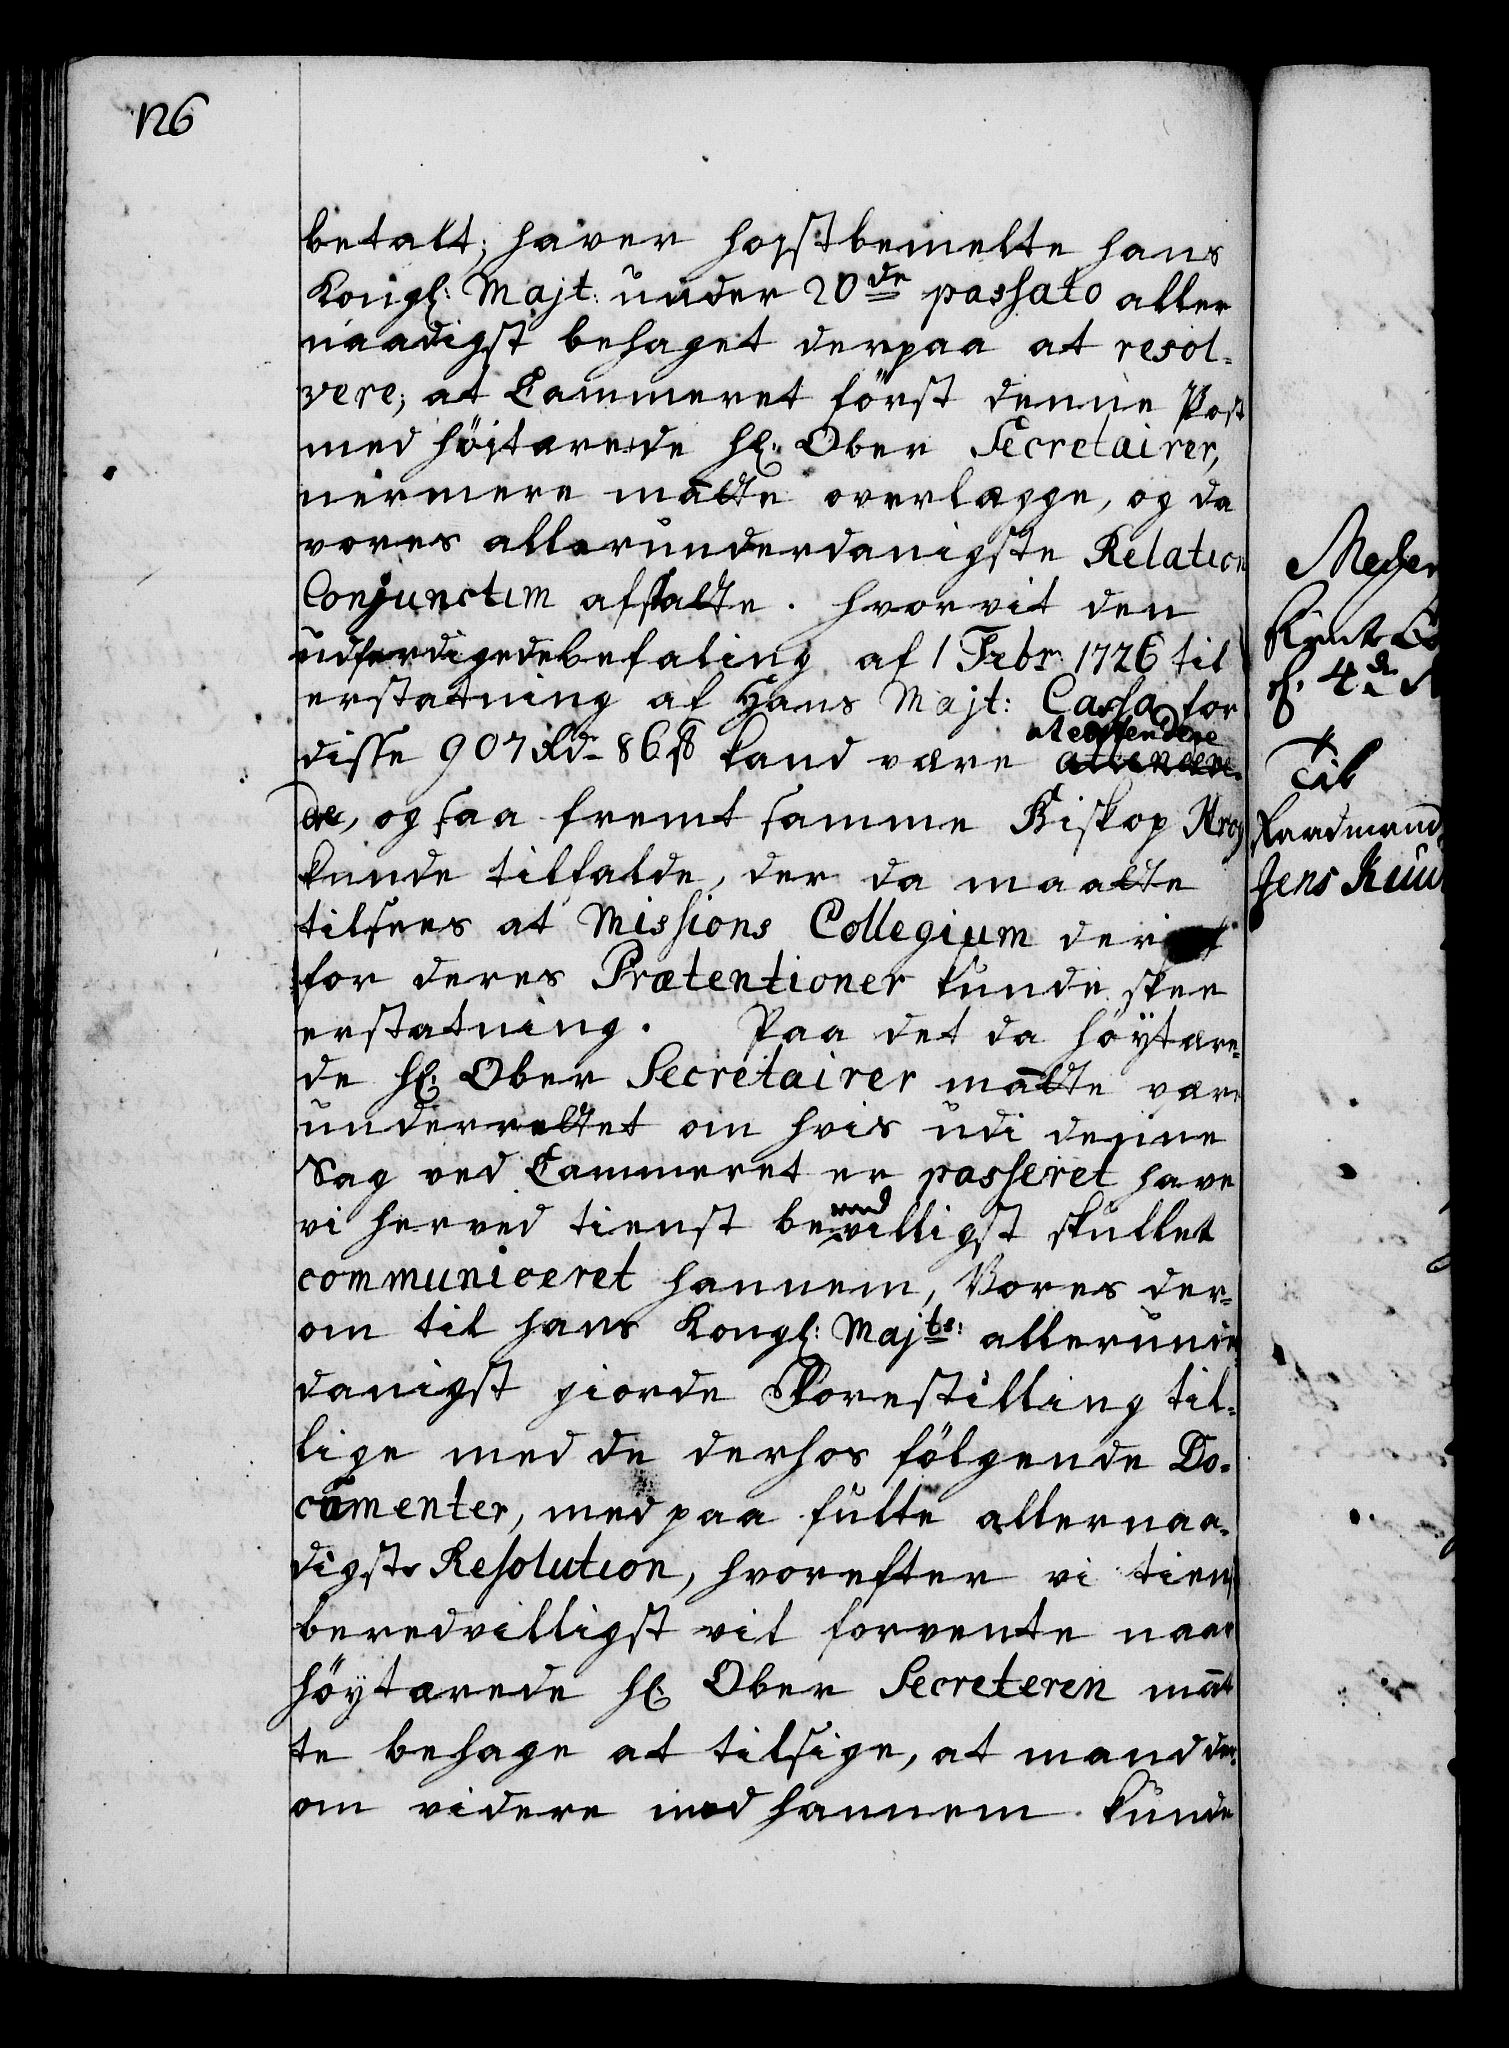 126
betalt; haver hoystbemelte hans
Kongl: Majt: under 20de passato aller
naadigst behaget derpaa at resol-
vere, at Cammeret först denne Post
med höjtærede Hr: Ober Secretairer,
nermere måtte overlægge, og da
vores allerunderdanigste Relation
Conjunctim afstatte. hvorvit den
udferdigede befaling af 1 Febr 1726 til
erstatning af Hans Majt: Cassa for
at extendere
disse 907 Rd- 86 ß kand være
de, og saa fremt samme Biskop Krog
kunde tilfalde, der da maatte
tilsees at Missions Collegium der
for deres Prætentioner kunde skee
erstatning. Paa det da höytære-
de Hr: Ober Secretairer måtte være
underrettet om hvis udi denne
Sag ved Cammeret er passeret have
vi herved tienst beredvilligst skullet
communiceret hannem, Vores der-
om til hans Kongl: Majts: allerunder
danigst giorde Forestilling til-
lige med de derhos fölgende Do-
cumenter, med paa fulte allernaa-
digste Resolution, hvorefter vi tienst
beredvilligst vil forvente naar
höytærede Hr: Ober Secreteren måt
te behage at tilsige, at mand der-
om videre med hannem kunde
Til
Raadmand
Jens